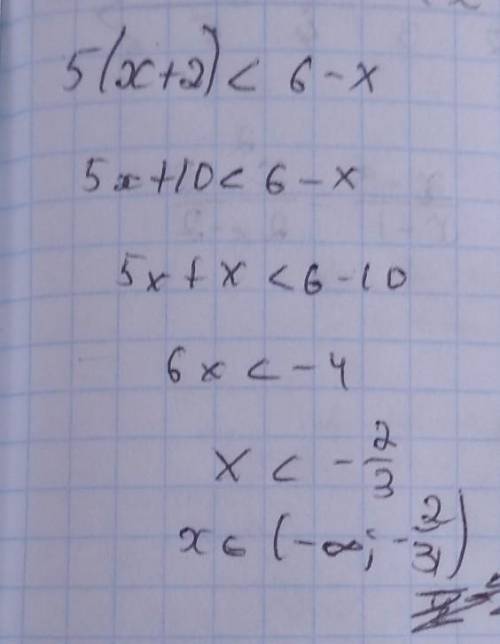 5(x+2) < 6 - x
5x + 10 < 6 - x
5x + x < 6 - 10
6x < - 4
x < - 2/3
x ∈ (-∞; - 2/3)